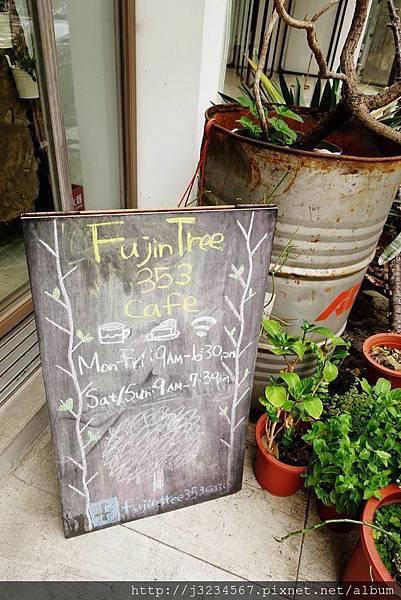 FujinTree
353
cafe
Mon-Fri: 9AM-6:30pm
Sat/Sun: 9AM-7:30pm
fujintree353cafe
http://j3234567.pixnet.net/album